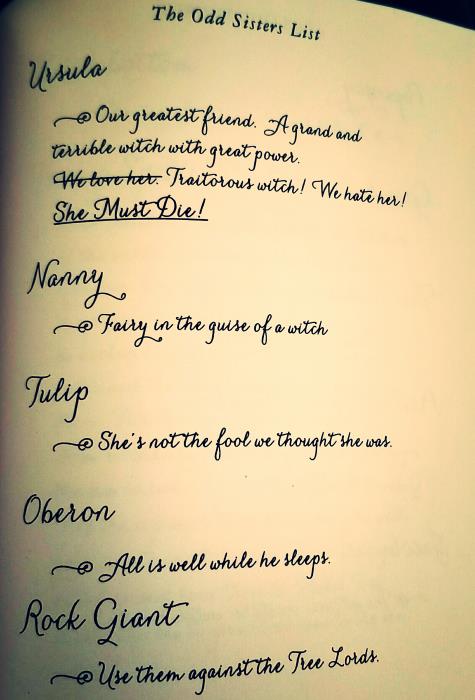 The Odd Sisters List
Ursula
Our greatest friend. A grand and
terrible witch with great power.
We love her. Traitorous witch! We hate her!
She Must Die!
Nanny
Fairy in the guise of a witch
Tulip
She's not the fool we thought she was.
Oberon
All is well while he sleeps.
Rock Giant
Use them against the Tree Lords.